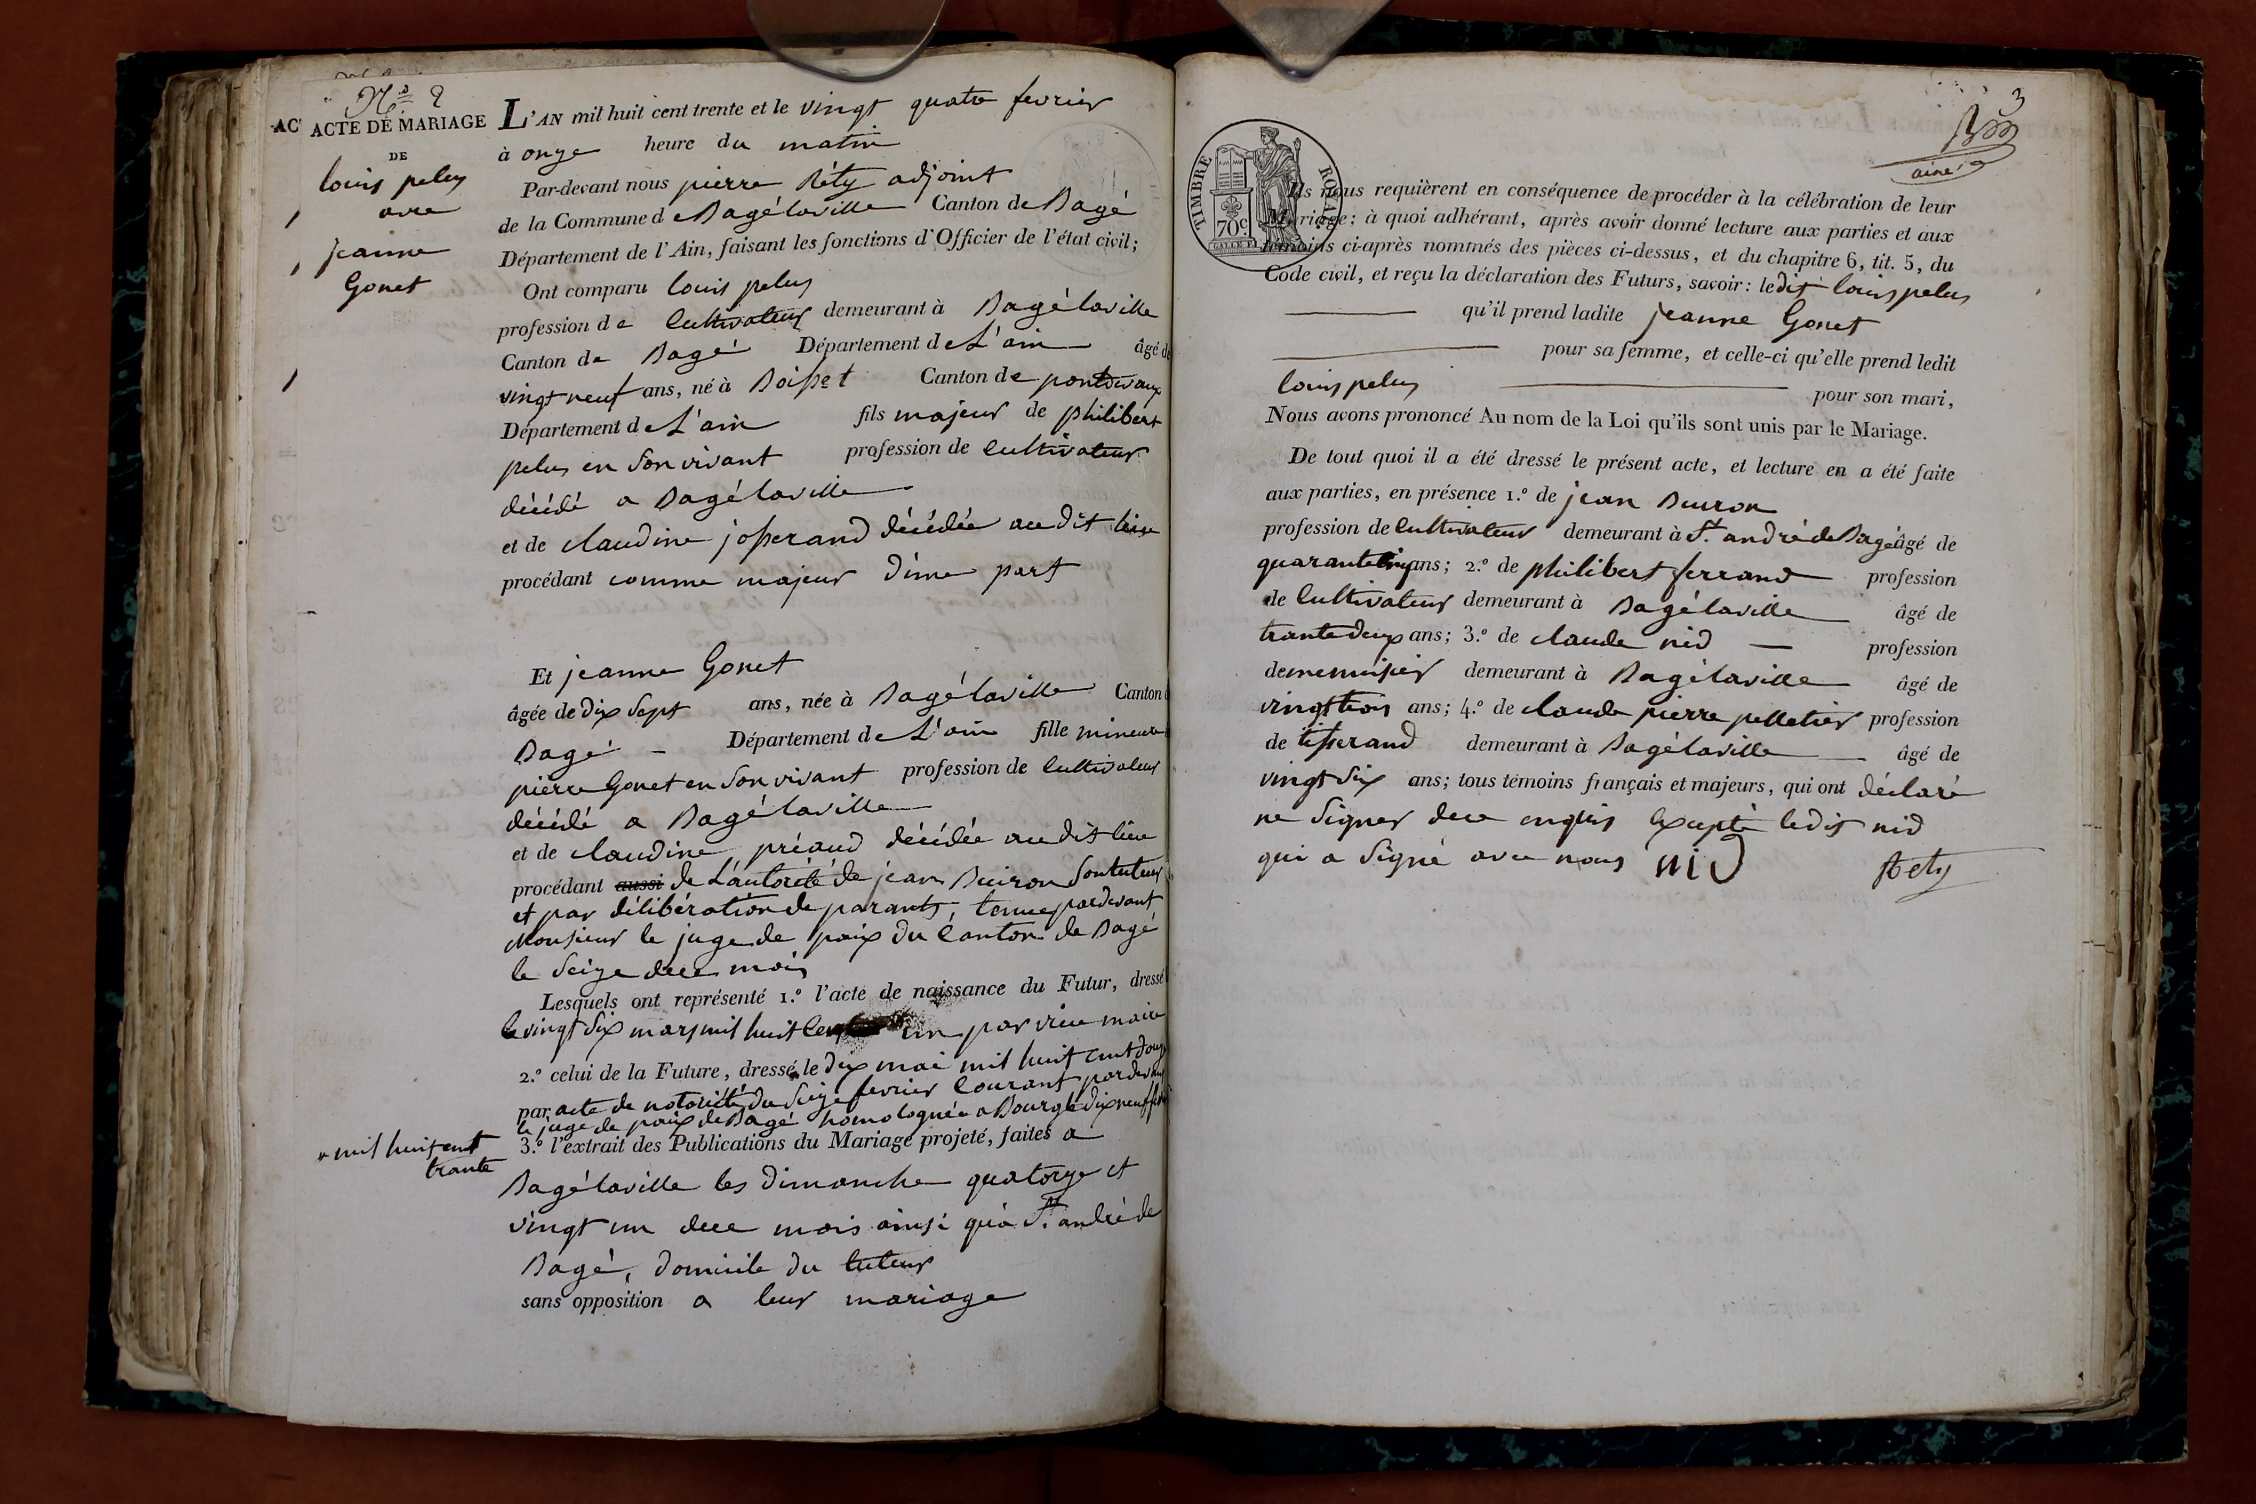 No 2
AC
ACTE DE MARIAGE
DE
louis pelus
avec
jeanne
Gonet
L'AN mil huit cent trente et le vingt quatre fevrier
à onze heure du matin
Par-devant nous pierre Réty adjoint
de la Commune de Bagélaville Canton de Bagé
Département de l'Ain, faisant les fonctions d'Officier de l'état civil;
Ont comparu louis pelus
profession de cultivateur demeurant à Bagélaville
Canton de Bagé Département de L'ain âgé de
vingt neuf ans, né à Boisset Canton de pontdevaux
Département de L'ain fils majeur de philibert
pelus en son vivant profession de cultivateur
décédé a Bagélaville
et de claudine josserand décédée audit lieu
procédant comme majeur d'une part
Et jeanne Gonet
âgée de dix sept ans, née à Bagélaville Canton d
Bagé Département de L'ain fille mineure d
pierre Gonet en son vivant profession de cultivateur
décédé a Bagélaville
et de claudine préaud décédée audit lieu
procédant aussi de L'autorité de jean Buiron son tuteur
et par délibération de parants, tenue pardevant
Monsieur le juge de paix du Canton de Bagé
le seize dece mois
Lesquels ont représenté 1.º l'acte de naissance du Futur, dressé
le vingt six mars mil huit cent un par maire
2.º celui de la Future, dressé le dix mai mil huit cent douze
par acte de notoriété du seize fevrier courant pardevant
le juge de paix de Bagé homologuée a Bourg le dix neuf
mil huit cent
trante
3.º l'extrait des Publications du Mariage projeté, faites a
Bagélaville les dimanche quatorze et
vingt un dece mois ainsi qu'a St. andré de
Bagé, domicile du tuteur
sans opposition a leur mariage
3
ainé
TIMBRE ROYAL
70c
Ils nous requièrent en conséquence de procéder à la célébration de leur
Mariage; à quoi adhérant, après avoir donné lecture aux parties et aux
témoins ci-après nommés des pièces ci-dessus, et du chapitre 6, tit. 5, du
Code civil, et reçu la déclaration des Futurs, savoir: ledit louis pelus
qu'il prend ladite jeanne Gonet
pour sa femme, et celle-ci qu'elle prend ledit
louis pelus pour son mari,
Nous avons prononcé Au nom de la Loi qu'ils sont unis par le Mariage.
De tout quoi il a été dressé le présent acte, et lecture en a été faite
aux parties, en présence 1.º de jean Buiron
profession de cultivateur demeurant à St. andré de Bagé âgé de
quarante cinq ans; 2.º de philibert ferrand profession
de cultivateur demeurant à Bagélaville âgé de
trante deux ans; 3.º de claude nid profession
de menuisier demeurant à Bagélaville âgé de
vingt trois ans; 4.º de claude pierre pelletier profession
de tisserand demeurant à Bagélaville âgé de
vingt six ans; tous témoins français et majeurs, qui ont déclaré
ne signer dece enquis Excepté ledit nid
qui a signé avec nous nid Réty